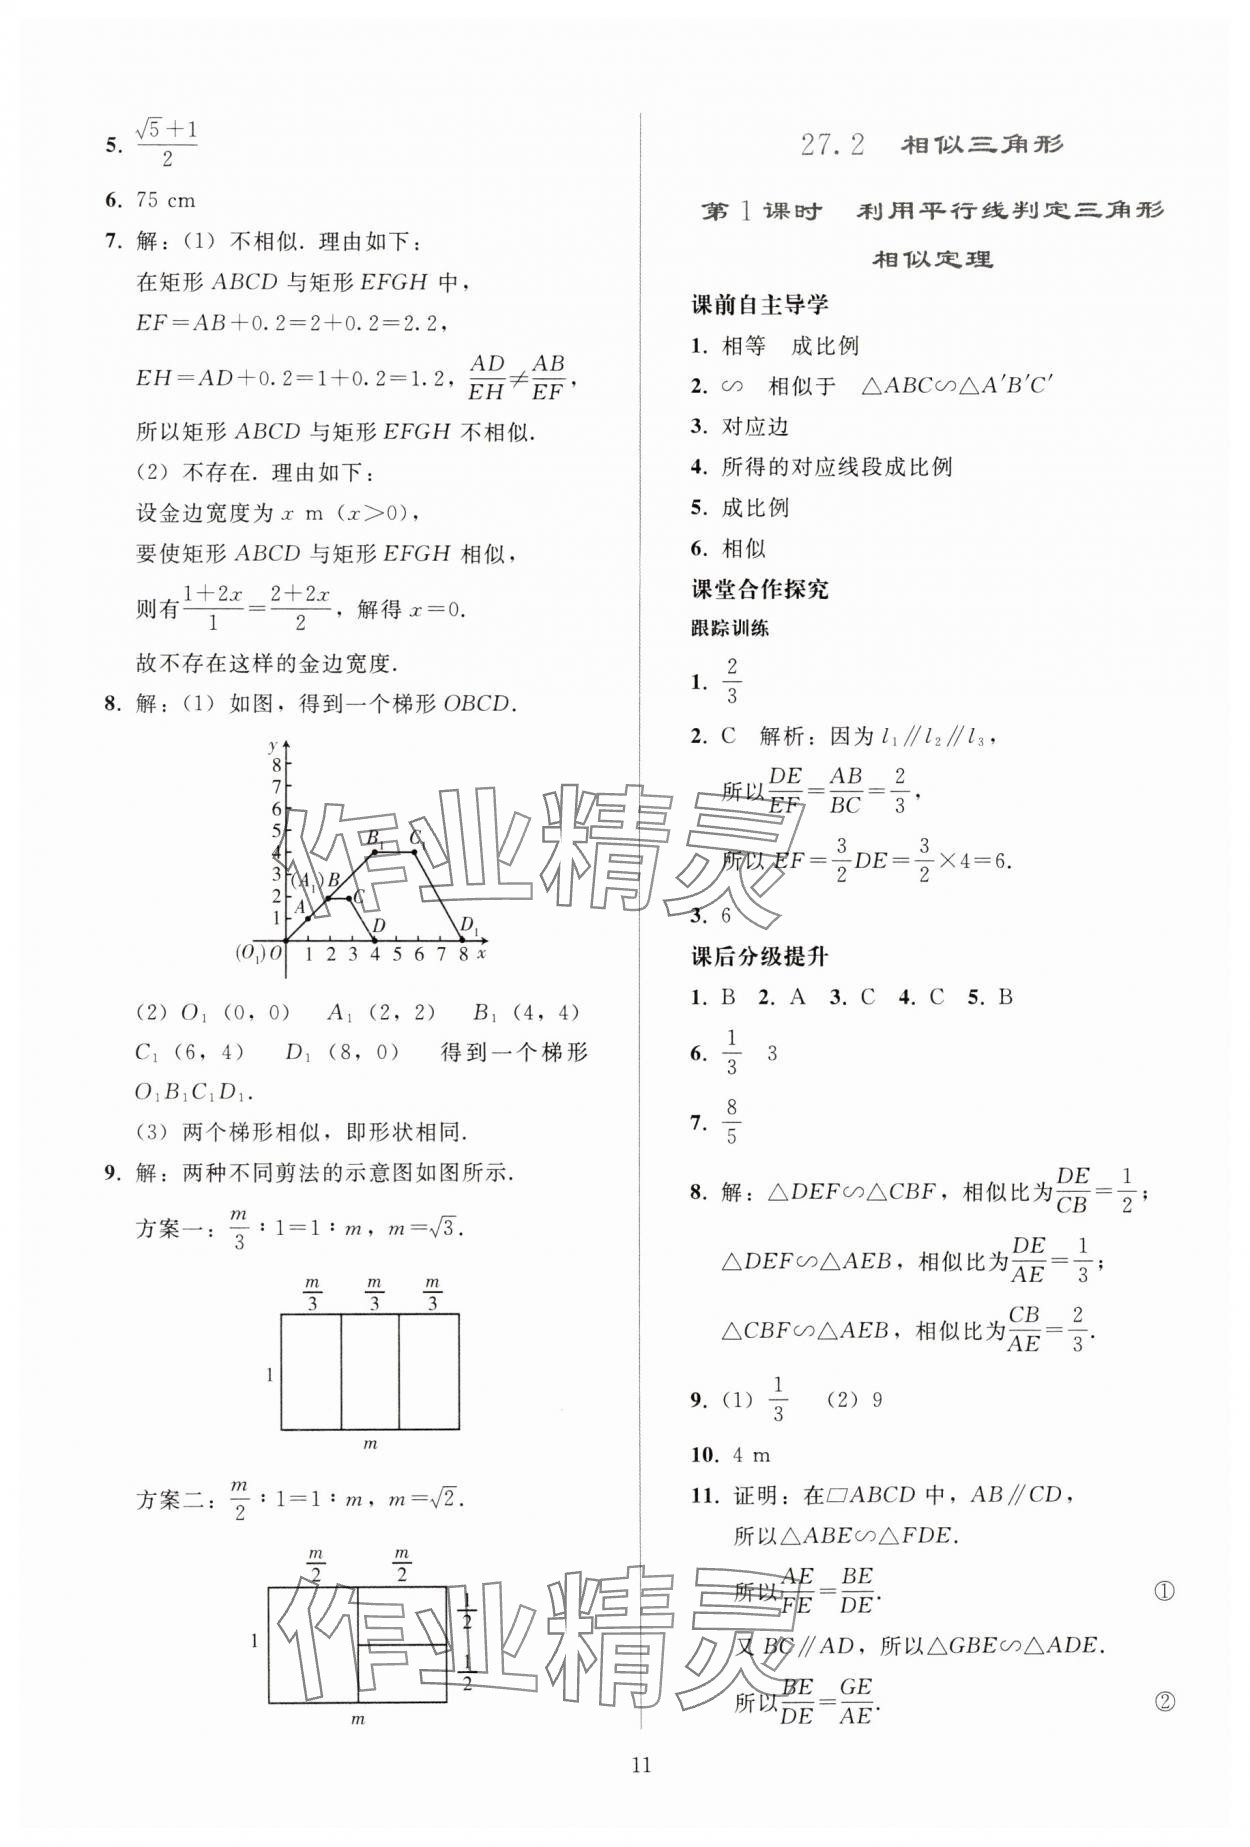 5. (√5+1)/2
6. 75 cm
7. 解：(1) 不相似. 理由如下：
在矩形 ABCD 与矩形 EFGH 中，
EF=AB+0.2=2+0.2=2.2，
EH=AD+0.2=1+0.2=1.2，AD/EH≠AB/EF，
所以矩形 ABCD 与矩形 EFGH 不相似.
(2) 不存在. 理由如下：
设金边宽度为 x m (x>0)，
要使矩形 ABCD 与矩形 EFGH 相似，
则有 (1+2x)/1=(2+2x)/2，解得 x=0.
故不存在这样的金边宽度.
8. 解：(1) 如图，得到一个梯形 OBCD.
y
8
7
6
5
4 B₁ C₁
3 (A₁) B
2 C
1 A D D₁
(O₁) O 1 2 3 4 5 6 7 8 x
(2) O₁ (0, 0) A₁ (2, 2) B₁ (4, 4)
C₁ (6, 4) D₁ (8, 0) 得到一个梯形
O₁B₁C₁D₁.
(3) 两个梯形相似，即形状相同.
9. 解：两种不同剪法的示意图如图所示.
方案一：m/3∶1=1∶m，m=√3.
m/3 m/3 m/3
1
m
方案二：m/2∶1=1∶m，m=√2.
m/2 m/2
1/2
1
1/2
m
27.2 相似三角形
第1课时 利用平行线判定三角形
相似定理
课前自主导学
1. 相等 成比例
2. ∽ 相似于 △ABC∽△A′B′C′
3. 对应边
4. 所得的对应线段成比例
5. 成比例
6. 相似
课堂合作探究
跟踪训练
1. 2/3
2. C 解析：因为 l₁∥l₂∥l₃，
所以 DE/EF=AB/BC=2/3，
所以 EF=3/2 DE=3/2×4=6.
3. 6
课后分级提升
1. B 2. A 3. C 4. C 5. B
6. 1/3 3
7. 8/5
8. 解：△DEF∽△CBF，相似比为 DE/CB=1/2；
△DEF∽△AEB，相似比为 DE/AE=1/3；
△CBF∽△AEB，相似比为 CB/AE=2/3.
9. (1) 1/3 (2) 9
10. 4 m
11. 证明：在▱ABCD 中，AB∥CD，
所以△ABE∽△FDE.
所以 AE/FE=BE/DE. ①
又 BC∥AD，所以△GBE∽△ADE.
所以 BE/DE=GE/AE. ②
11
作业精灵
作业精灵